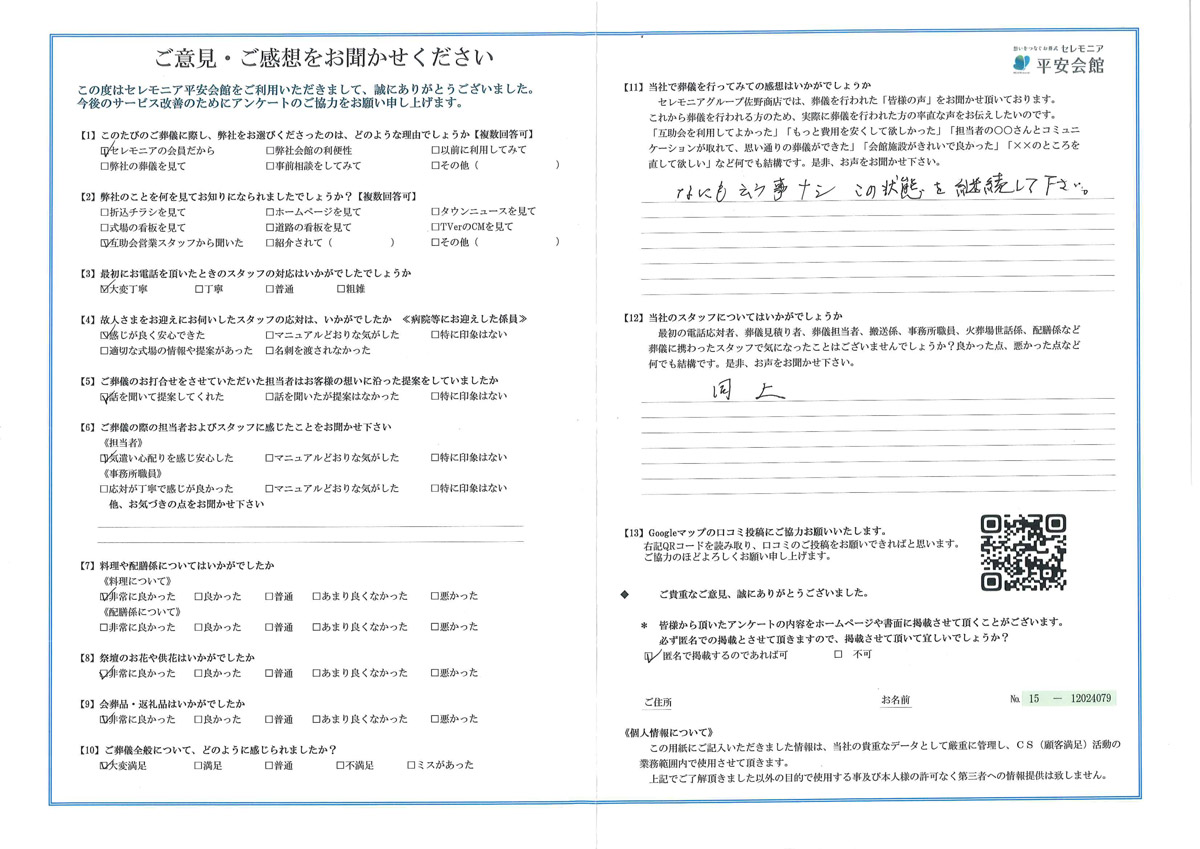 ご意見・ご感想をお聞かせください
この度はセレモニア平安会館をご利用いただきまして、誠にありがとうございました。
今後のサービス改善のためにアンケートのご協力をお願い申し上げます。
【1】このたびのご葬儀に際し、弊社をお選びくださったのは、どのような理由でしょうか【複数回答可】
☑セレモニアの会員だから □弊社会館の利便性 □以前に利用してみて
□弊社の葬儀を見て □事前相談をしてみて □その他（ ）
【2】弊社のことを何を見てお知りになられましたでしょうか？【複数回答可】
□折込チラシを見て □ホームページを見て □タウンニュースを見て
□式場の看板を見て □道路の看板を見て □TVerのCMを見て
☑互助会営業スタッフから聞いた □紹介されて（ ） □その他（ ）
【3】最初にお電話を頂いたときのスタッフの対応はいかがでしたでしょうか
☑大変丁寧 □丁寧 □普通 □粗雑
【4】故人さまをお迎えにお伺いしたスタッフの応対は、いかがでしたか ≪病院等にお迎えした係員≫
☑感じが良く安心できた □マニュアルどおりな気がした □特に印象はない
□適切な式場の情報や提案があった □名刺を渡されなかった
【5】ご葬儀のお打合せをさせていただいた担当者はお客様の想いに沿った提案をしていましたか
☑話を聞いて提案してくれた □話を聞いたが提案はなかった □特に印象はない
【6】ご葬儀の際の担当者およびスタッフに感じたことをお聞かせ下さい
《担当者》
☑気遣い心配りを感じ安心した □マニュアルどおりな気がした □特に印象はない
《事務所職員》
□応対が丁寧で感じが良かった □マニュアルどおりな気がした □特に印象はない
他、お気づきの点をお聞かせ下さい
【7】料理や配膳係についてはいかがでしたか
《料理について》
☑非常に良かった □良かった □普通 □あまり良くなかった □悪かった
《配膳係について》
□非常に良かった □良かった □普通 □あまり良くなかった □悪かった
【8】祭壇のお花や供花はいかがでしたか
☑非常に良かった □良かった □普通 □あまり良くなかった □悪かった
【9】会葬品・返礼品はいかがでしたか
☑非常に良かった □良かった □普通 □あまり良くなかった □悪かった
【10】ご葬儀全般について、どのように感じられましたか？
☑大変満足 □満足 □普通 □不満足 □ミスがあった
想いをつなぐお葬式 セレモニア
平安会館
【11】当社で葬儀を行ってみての感想はいかがでしょうか
セレモニアグループ佐野商店では、葬儀を行われた「皆様の声」をお聞かせ頂いております。
これから葬儀を行われる方のため、実際に葬儀を行われた方の率直な声をお伝えしたいのです。
「互助会を利用してよかった」「もっと費用を安くして欲しかった」「担当者の〇〇さんとコミュニ
ケーションが取れて、思い通りの葬儀ができた」「会館施設がきれいで良かった」「××のところを
直して欲しい」など何でも結構です。是非、お声をお聞かせ下さい。
なにも云う事ナシ この状態を継続して下さい。
【12】当社のスタッフについてはいかがでしょうか
最初の電話応対者、葬儀見積り者、葬儀担当者、搬送係、事務所職員、火葬場世話係、配膳係など
葬儀に携わったスタッフで気になったことはございませんでしょうか？良かった点、悪かった点など
何でも結構です。是非、お声をお聞かせ下さい。
同上
【13】Googleマップの口コミ投稿にご協力お願いいたします。
右記QRコードを読み取り、口コミのご投稿をお願いできればと思います。
ご協力のほどよろしくお願い申し上げます。
◆ ご貴重なご意見、誠にありがとうございました。
＊ 皆様から頂いたアンケートの内容をホームページや書面に掲載させて頂くことがございます。
必ず匿名での掲載とさせて頂きますので、掲載させて頂いて宜しいでしょうか？
☑匿名で掲載するのであれば可 □ 不可
ご住所 お名前 No. 15 － 12024079
《個人情報について》
この用紙にご記入いただきました情報は、当社の貴重なデータとして厳重に管理し、ＣＳ（顧客満足）活動の
業務範囲内で使用させて頂きます。
上記でご了解頂きました以外の目的で使用する事及び本人様の許可なく第三者への情報提供は致しません。